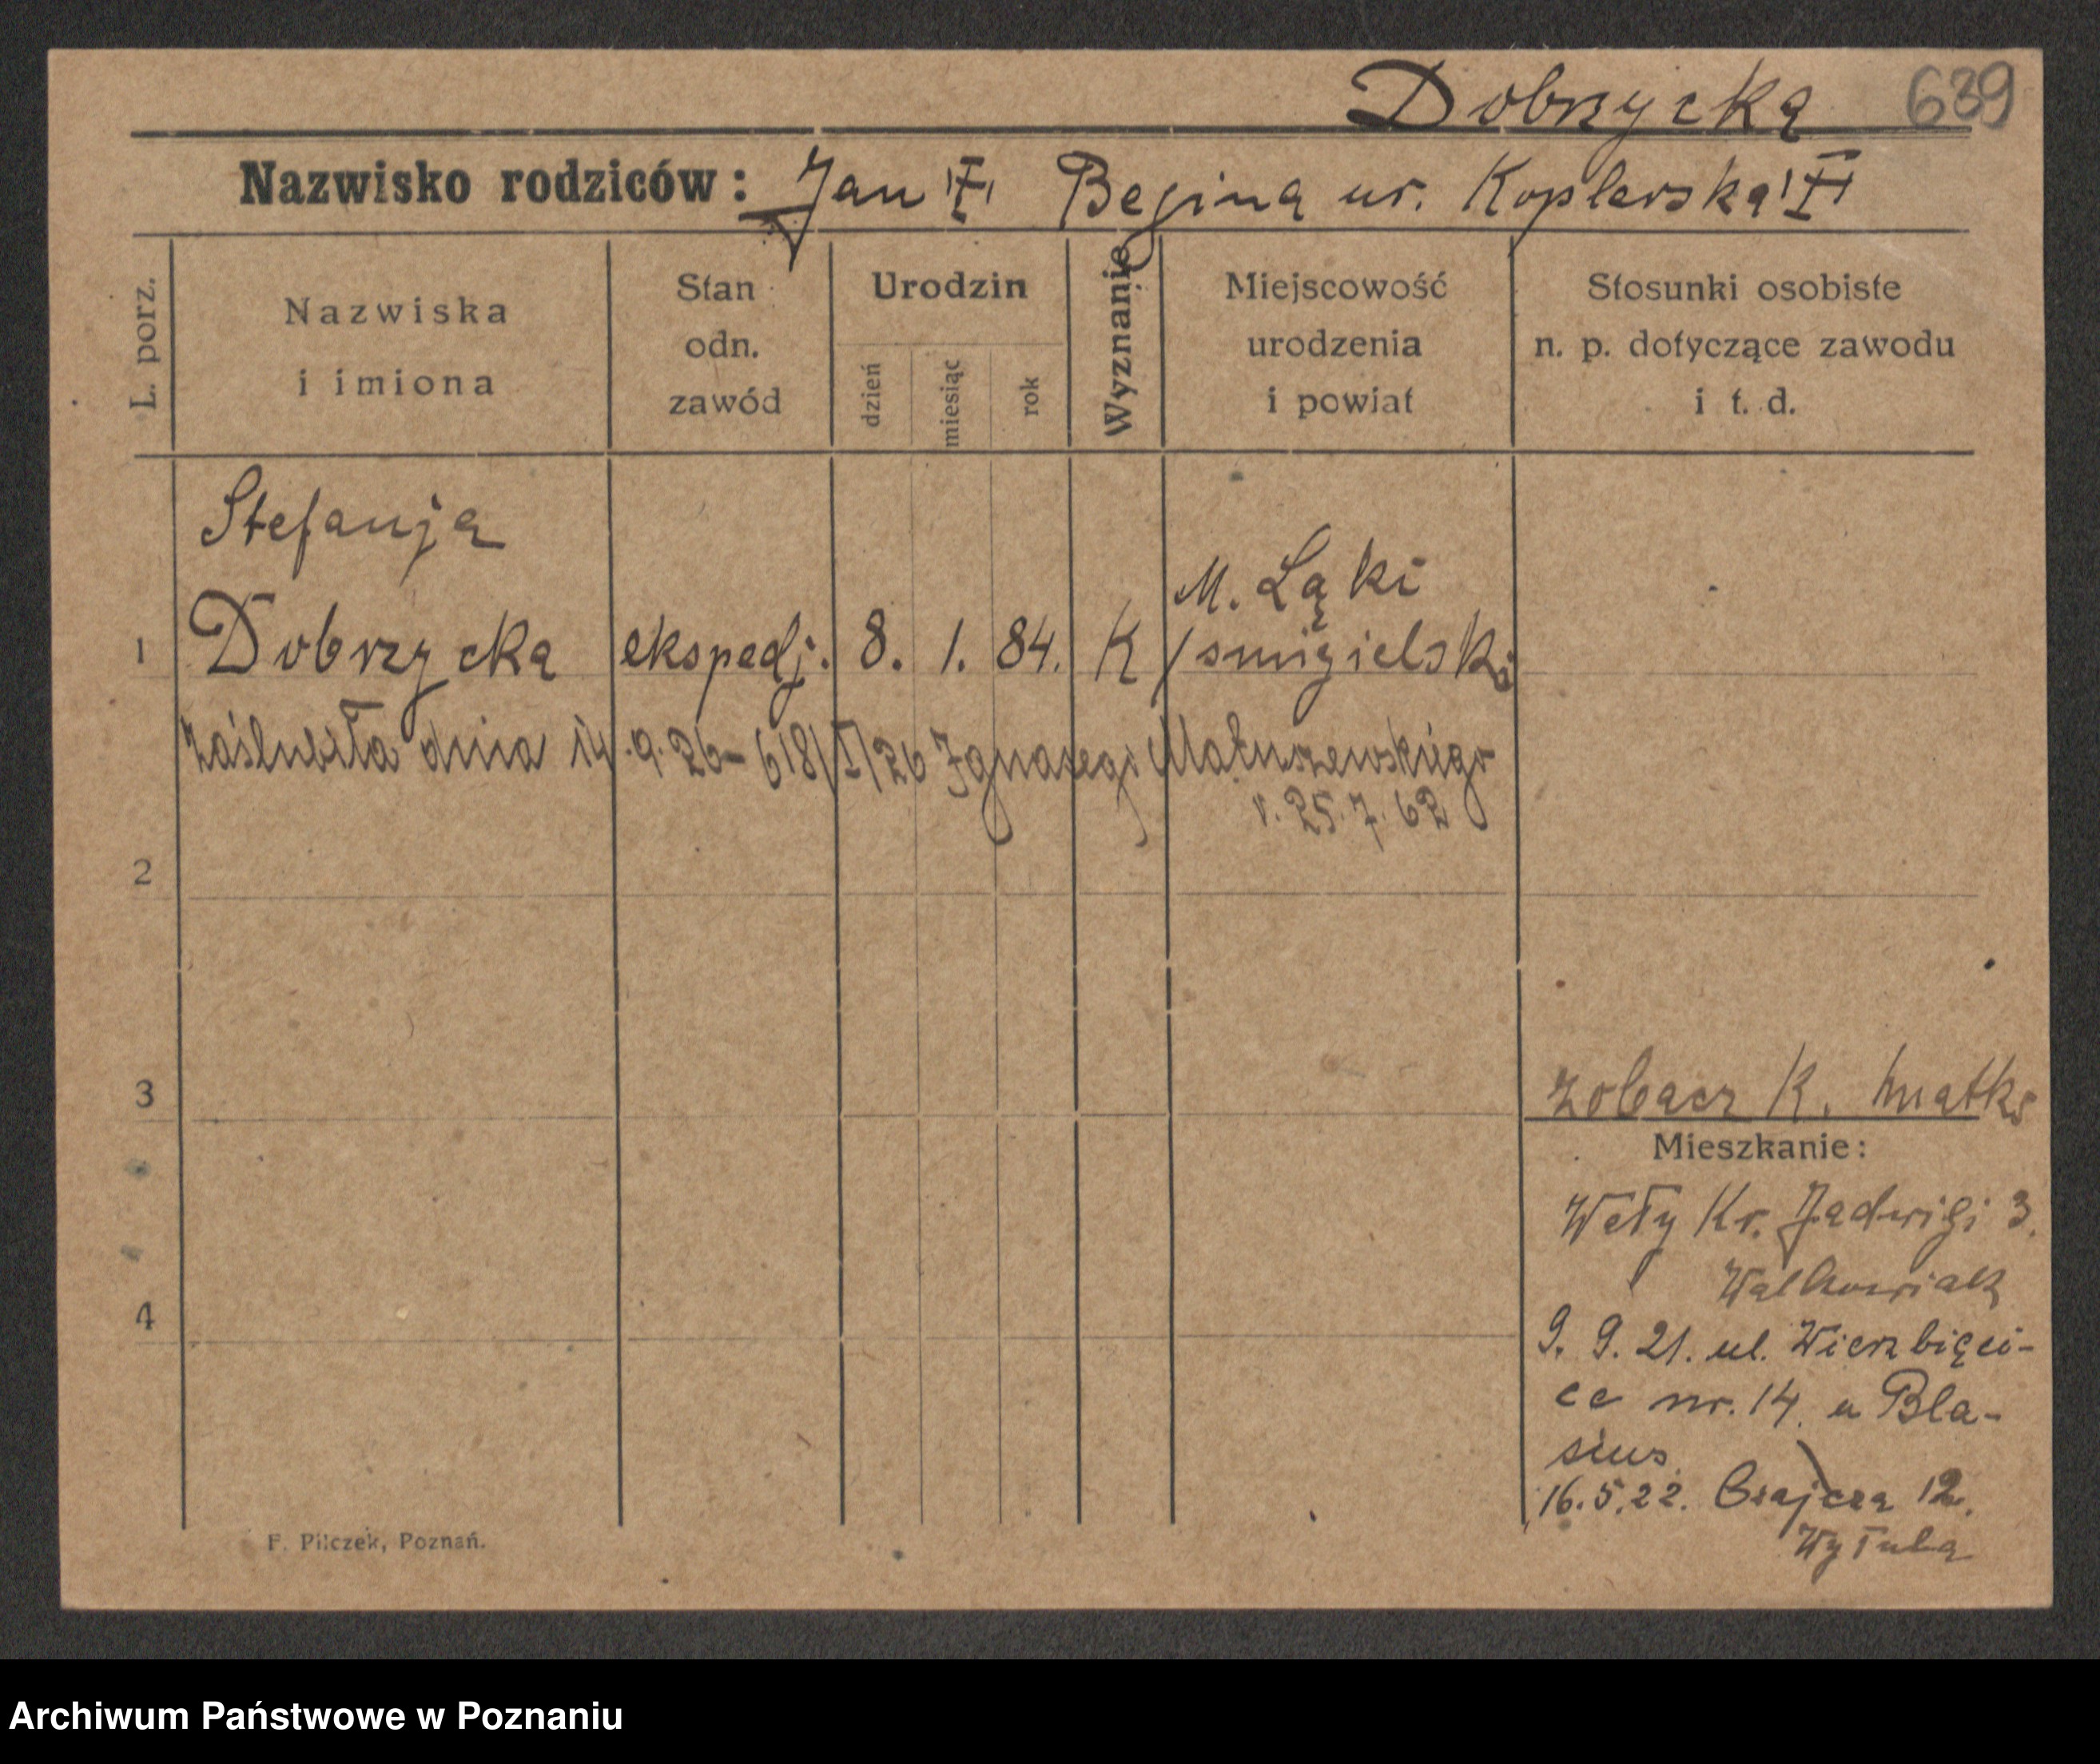 Dobrzycka 639
Nazwisko rodziców: Jan Regina ur. Koplerska
L. porz.
Nazwiska
i imiona
Stan
odn.
zawód
Urodzin
dzień
miesiąc
rok
Wyznanie
Miejscowość
urodzenia
i powiat
Stosunki osobiste
n. p. dotyczące zawodu
i t. d.
Stefanja
M. Łąki
1 Dobrzycka ekspedj. 8. 1. 84. K /śmigielski
zaślubiła dnia 14.9.26 - 618/I/26 Ignacego Matuszewskiego
r. 25.7.62
2
3
zobacz K. matks
Mieszkanie:
Wały Kr. Jadwigi 3.
Walkowiak
4
9. 9. 21. ul. Wierzbięci-
ce nr. 14. u Bla-
sius
16.5.22. Czajcza 12.
Wytuła
F. Pilczek, Poznań.
Archiwum Państwowe w Poznaniu